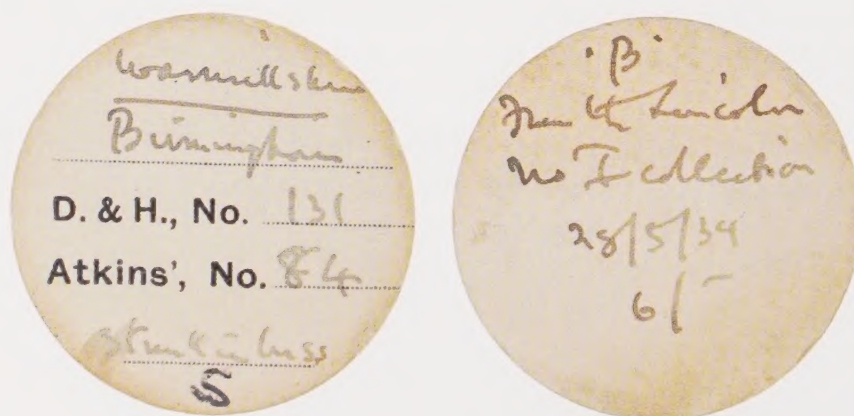 Warwickshire
Birmingham
D. & H., No. 131
Atkins', No. 84
Struck in brass
S
"B"
From the Lincoln
No I collection
28/5/34
6/-